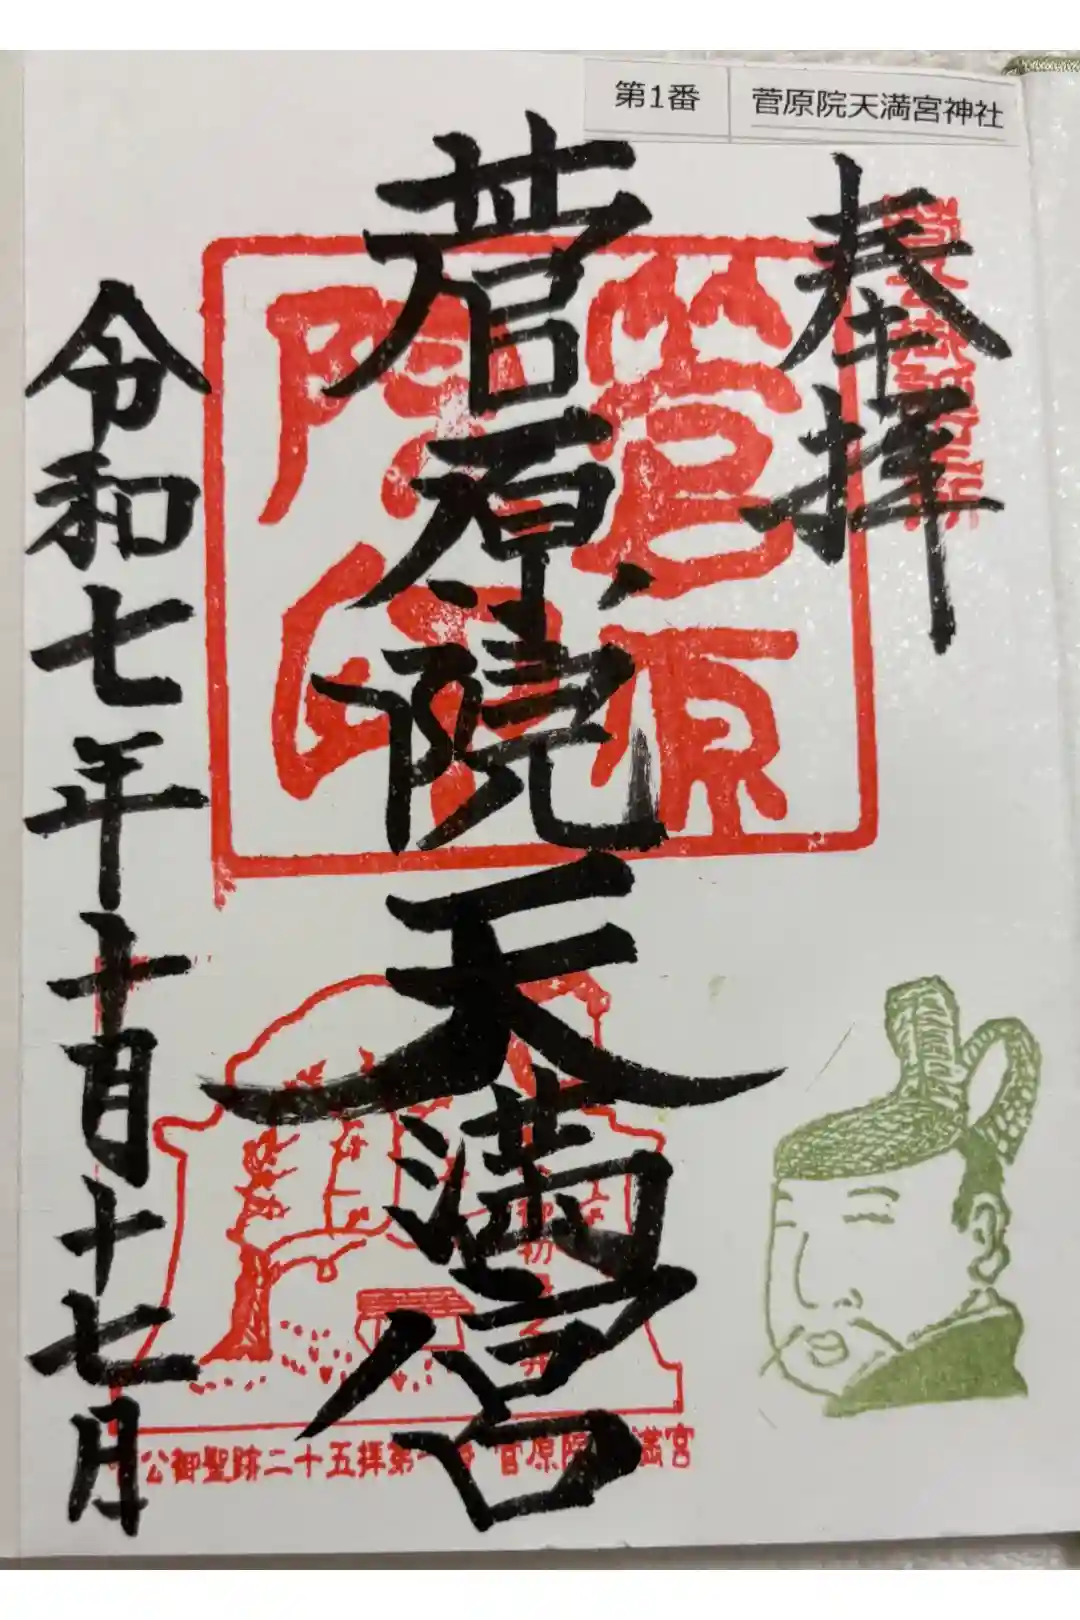 第1番 菅原院天満宮神社
奉拝
菅原院天満宮
令和七年十月十七月
菅原院印
公御聖跡二十五拝第一番 菅原院天満宮